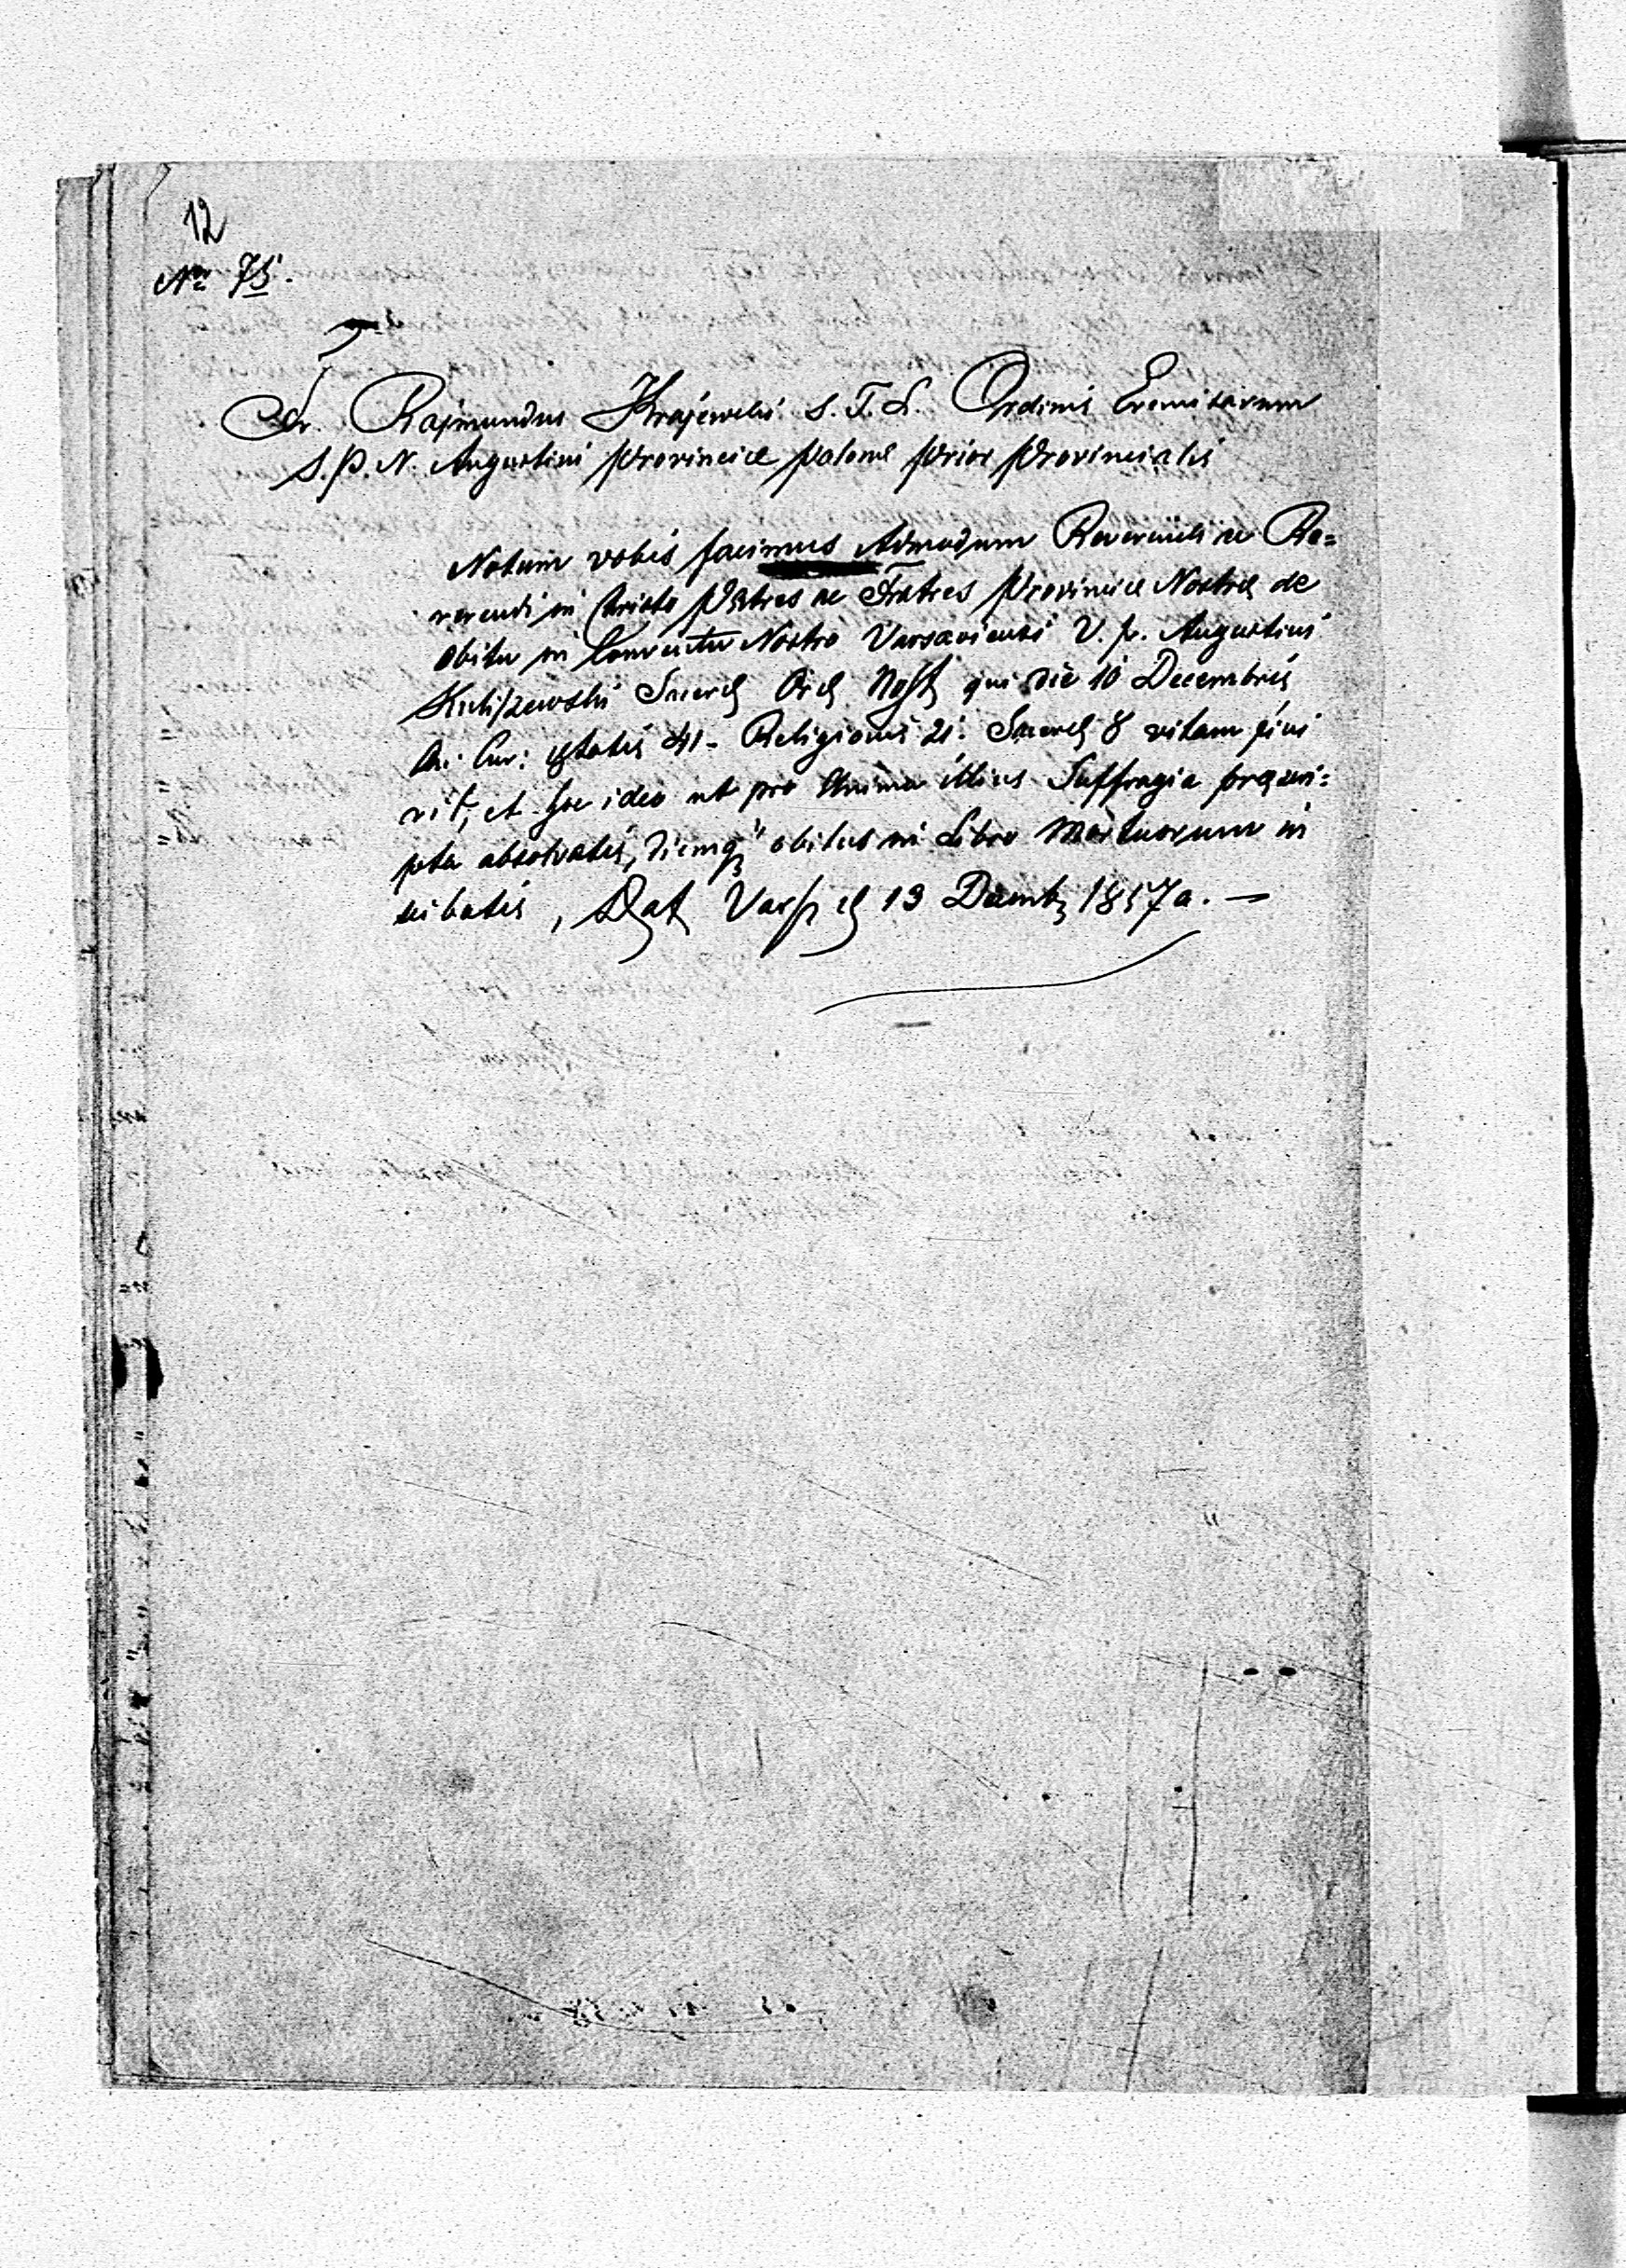 12
Nro 75.
Fr. Rajmundus Krajewski S. T. L. Ordinis Eremitarum
S. P. N. Augustini Provinciæ Polonæ Prior Provincialis
Notum vobis facimus Admodum Reverendi ac Re=
verendi in Christo Patres ac Fratres Provinciæ Nostræ de
obitu in Conventu Nostro Varsaviensi V. P. Augustini
qui die 10 Decembris
An: Cur: ætatis 41 - Religionis 21: 8 vitam fini
vit, et hoc ideo ut pro Anima illius Suffragia præscri=
pta absolvatis, diemq obitus in Libro Mortuorum in
scribatis, Dat 13 1857 a. —